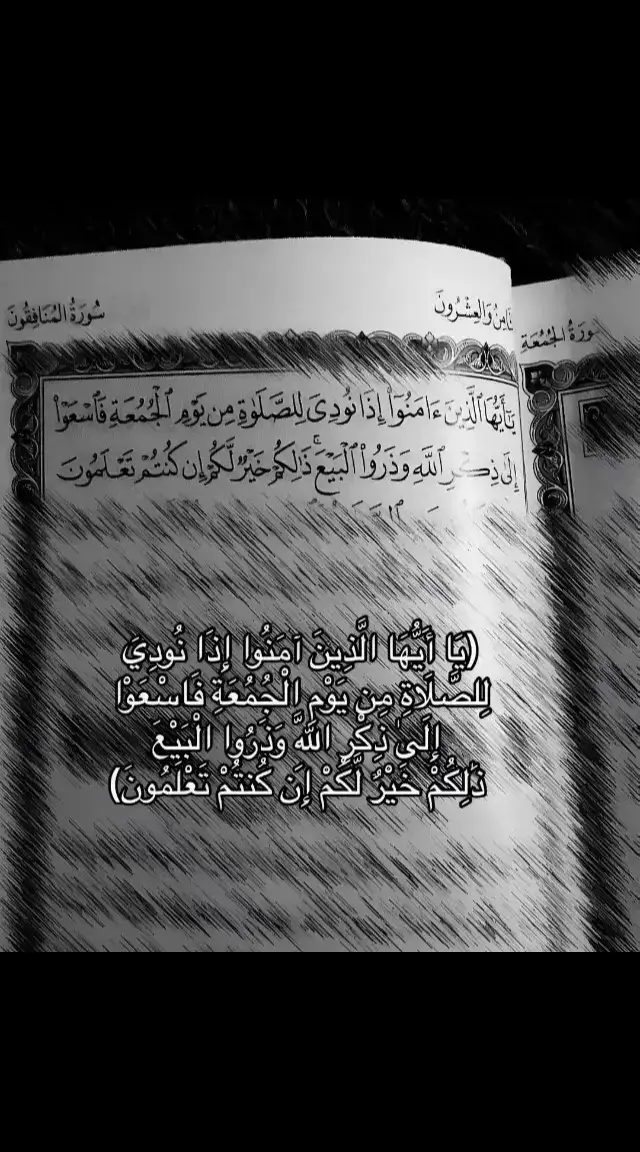 سُورَةُ الجُمُعَة
سُورَةُ المُنَافِقُونَ
يَٰٓأَيُّهَا ٱلَّذِينَ ءَامَنُوٓاْ إِذَا نُودِيَ لِلصَّلَوٰةِ مِن يَوۡمِ ٱلۡجُمُعَةِ فَٱسۡعَوۡاْ
إِلَىٰ ذِكۡرِ ٱللَّهِ وَذَرُواْ ٱلۡبَيۡعَۚ ذَٰلِكُمۡ خَيۡرٞ لَّكُمۡ إِن كُنتُمۡ تَعۡلَمُونَ
(يَا أَيُّهَا الَّذِينَ آمَنُوا إِذَا نُودِيَ
لِلصَّلَاةِ مِن يَوْمِ الْجُمُعَةِ فَاسْعَوْا
إِلَىٰ ذِكْرِ اللَّهِ وَذَرُوا الْبَيْعَ
ذَٰلِكُمْ خَيْرٌ لَّكُمْ إِن كُنتُمْ تَعْلَمُونَ)